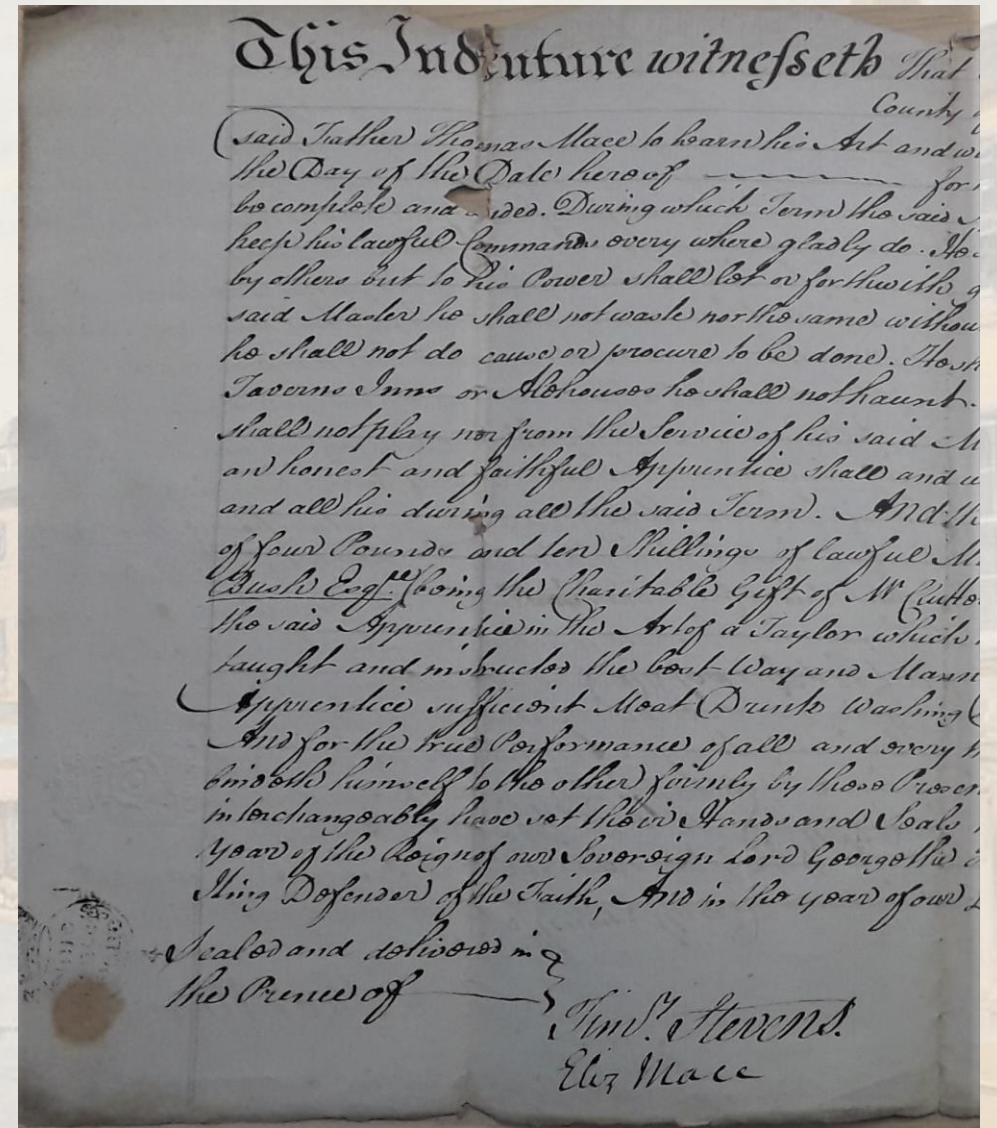 This Indenture witnesseth That
County
said Father Thomas Mace to learn his Art and
the Day of the Date hereof for
be complete and ended. During which Term the said
keep his lawful Commands every where gladly do. He
by others but to his Power shall let or forthwith
said Master he shall not waste nor the same
he shall not do cause or procure to be done. He
Taverns Inns or Alehouses he shall not haunt.
shall not play nor from the Service of his said
an honest and faithful Apprentice shall and
and all his during all the said Term. And
of four Pounds and ten Shillings of lawful
Bush Esqre. (being the Charitable Gift of Mr
the said Apprentice in the Art of a Taylor which
taught and instructed the best Way and
Apprentice sufficient Meat Drink Washing
And for the true Performance of all and every
bindeth himself to the other firmly by these
interchangeably have set their Hands and Seals
Year of the Reign of our Sovereign Lord George the
King Defender of the Faith, And in the year of our
Sealed and delivered in
the Prence of
Timy. Stevens.
Eliz Mace